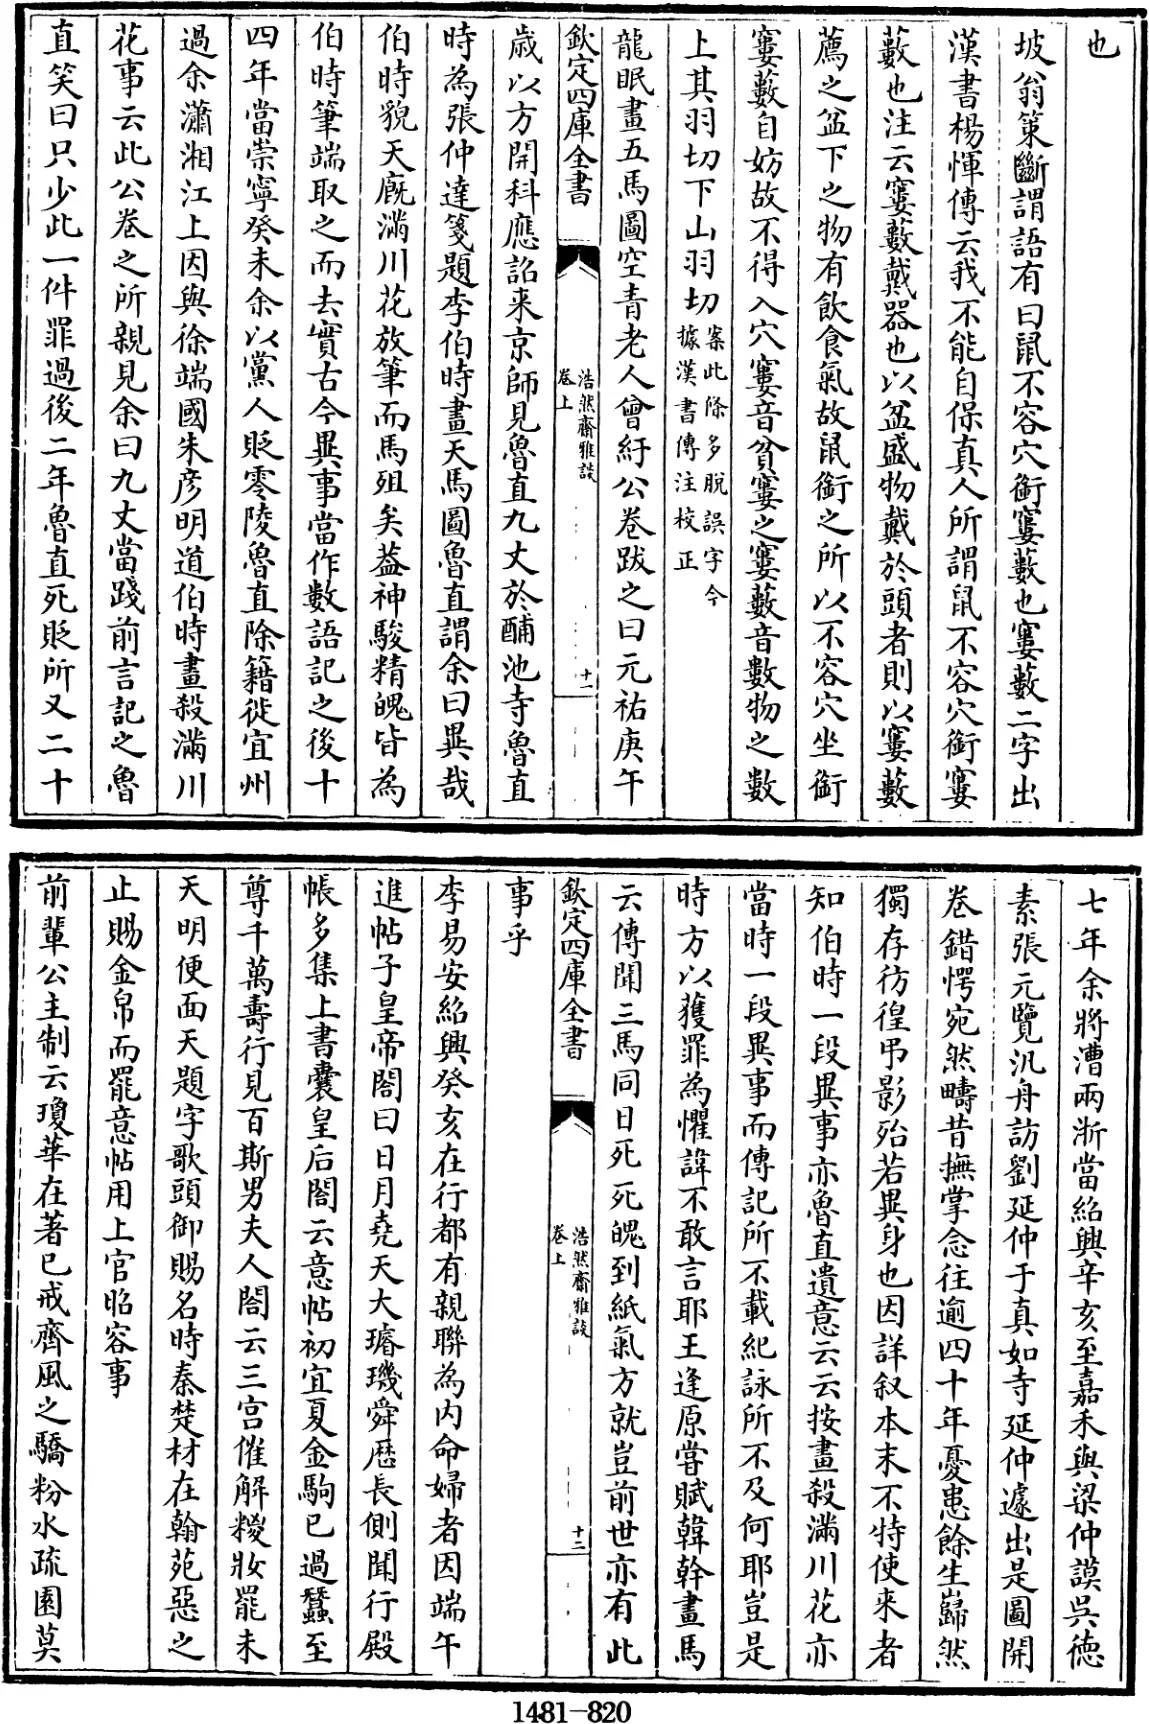 也
坡翁策斷謂語有曰鼠不容穴銜窶藪也窶藪二字出
漢書楊惲傳云我不能自保真人所謂鼠不容穴銜窶
藪也注云窶藪戴器也以盆盛物戴於頭者則以窶藪
薦之盆下之物有飲食氣故鼠銜之所以不容穴坐銜
窶藪自妨故不得入穴窶音貧窶之窶藪音數物之數
上其羽切下山羽切案此條多脫誤字今據漢書傳注校正
龍眠畫五馬圖空青老人曾紆公卷跋之曰元祐庚午
欽定四庫全書
浩然齋雅談
卷上
十一
歲以方聞科應詔来京師見魯直九丈於酺池寺魯直
時為張仲達箋題李伯時畫天馬圖魯直謂余曰異哉
伯時貌天廐滿川花放筆而馬殂矣葢神駿精魄皆為
伯時筆端取之而去實古今異事當作數語記之後十
四年當崇寧癸未余以黨人貶零陵魯直除籍徙宜州
過余瀟湘江上因與徐端國朱彦明道伯時畫殺滿川
花事云此公卷之所親見余曰九丈當踐前言記之魯
直笑曰只少此一件罪過後二年魯直死貶所又二十
七年余將漕兩浙當紹興辛亥至嘉禾與梁仲謨吳德
素張元覽汎舟訪劉延仲于真如寺延仲遽出是圖開
卷錯愕宛然疇昔撫掌念往逾四十年憂患餘生巋然
獨存彷徨弔影殆若異身也因詳叙本末不特使来者
知伯時一段異事亦魯直遺意云云按畫殺滿川花亦
當時一段異事而傳記所不載紀詠所不及何耶豈是
時方以獲罪為懼諱不敢言耶王逢原嘗賦韓幹畫馬
云傳聞三馬同日死死魄到紙氣方就豈前世亦有此
欽定四庫全書
浩然齋雅談
卷上
十二
事乎
李易安紹興癸亥在行都有親聯為内命婦者因端午
進帖子皇帝閤曰日月堯天大璿璣舜厯長側聞行殿
帳多集上書囊皇后閤云意帖初宜夏金駒已過蠶至
尊千萬壽行見百斯男夫人閤云三宫催解糉妝罷未
天明便面天題字歌頭御賜名時秦楚材在翰苑惡之
止賜金帛而罷意帖用上官昭容事
前輩公主制云瓊華在著已戒齊風之驕粉水疏園莫
1481-820